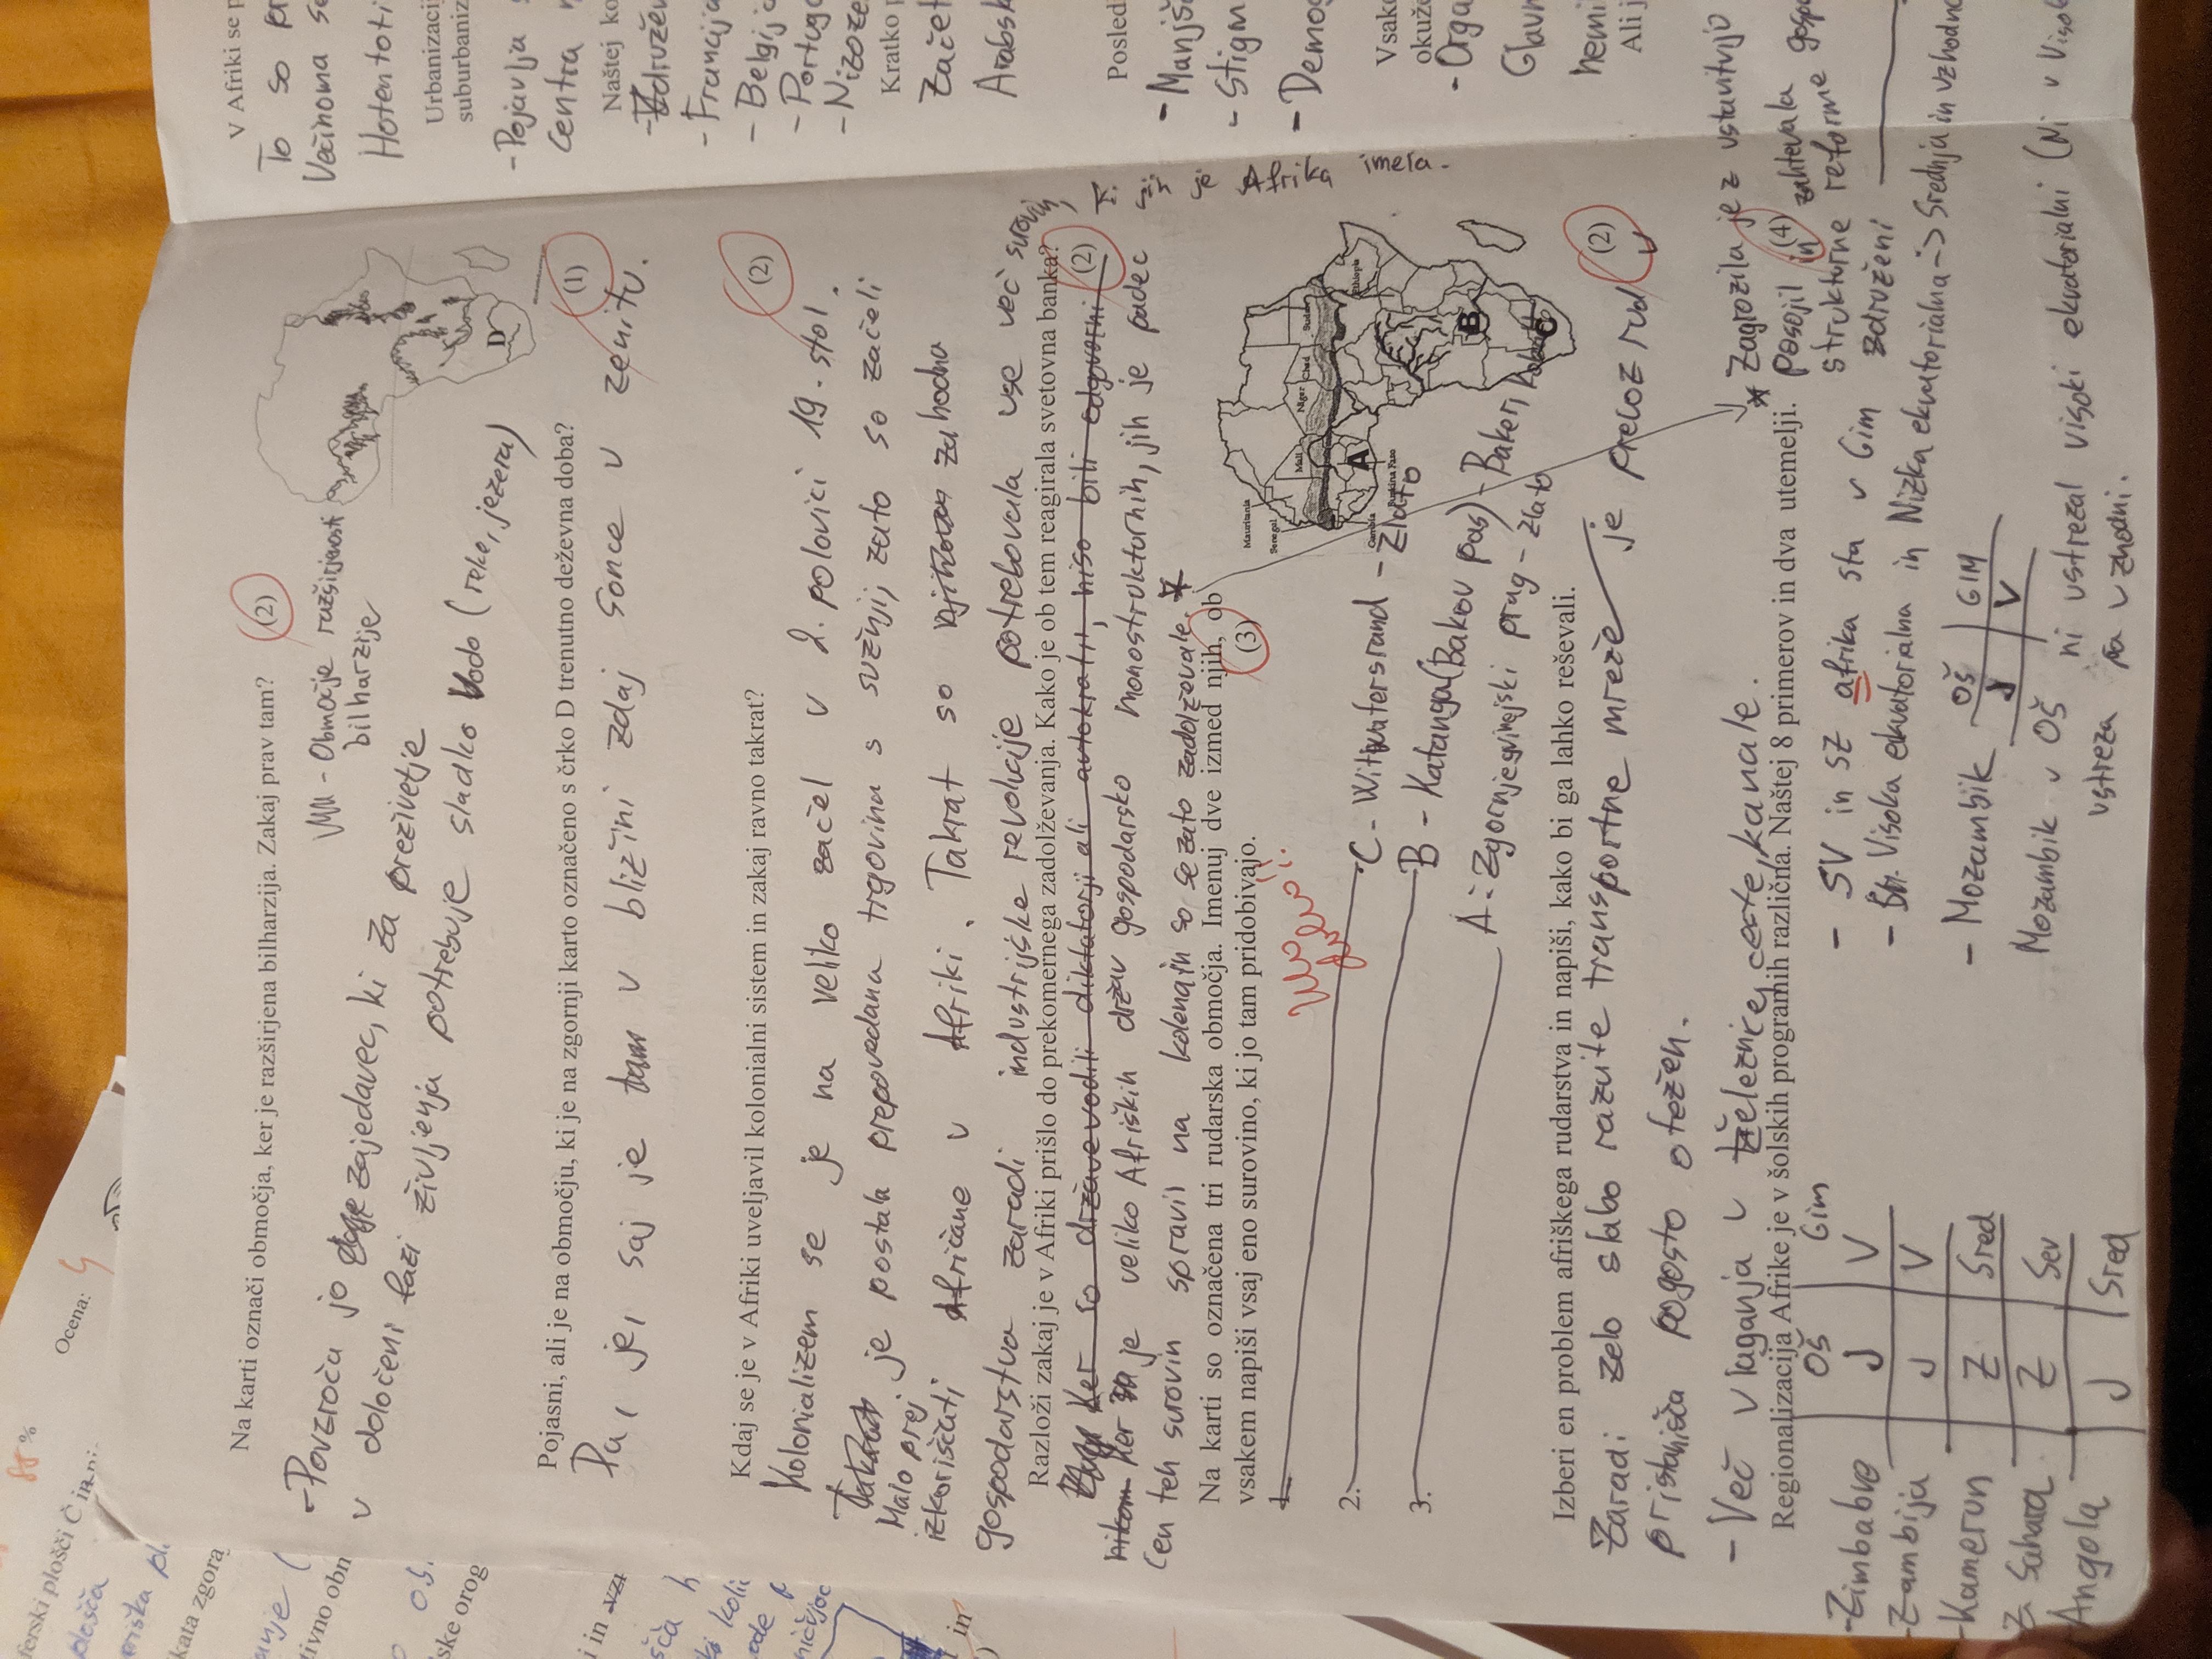 88 %
Ocena: 4
ferski plošči Č in ni
plošča
kata zgoraj
anje (
tivno obn
ske orog
i in
šča h
ode
in
Na karti označi območja, ker je razširjena bilharzija. Zakaj prav tam? (2)
- Povzroča jo zajedavec, ki za prezivetje
v določeni fazi življenja potrebuje sladko vodo (reke, jezera)
- Območje razširjenosti
bilharzije
D
Pojasni, ali je na območju, ki je na zgornji karto označeno s črko D trenutno deževna doba? (1)
Da, je, saj je tam v bližini zdaj sonce v zenitu.
Kdaj se je v Afriki uveljavil kolonialni sistem in zakaj ravno takrat? (2)
Kolonializem se je na veliko začel v 2. polovici 19. stol.
Takrat je postala prepovedana trgovina s sužnji, zato so začeli
Malo prej
izkoriščati Afričane v Afriki. Takrat so njihova zahodna
gospodarstva zaradi industrijske revolucije potrebovala vse več surovin, ki jih je Afrika imela.
Razloži zakaj je v Afriki prišlo do prekomernega zadolževanja. Kako je ob tem reagirala svetovna banka? (2)
Ker so države vodili diktatorji ali avtokrati, niso bili odgovorni
nikom Ker je veliko Afriških držav gospodarsko monostrukturnih, jih je padec
cen teh surovin spravil na kolena in so se zato zadolževale. *
Na karti so označena tri rudarska območja. Imenuj dve izmed njih, ob
vsakem napiši vsaj eno surovino, ki jo tam pridobivajo. (3)
1.
2.
3.
C - Witwatersrand - Zlato
B - Katanga (Bakov pas) - Baker, kobalt
A: Zgornjegvinejski prag - zlato
Mauritania
Senegal
Mali
Niger
Chad
Sudan
Ethiopia
Gambia
Burkina Faso
A
B
C
Izberi en problem afriškega rudarstva in napiši, kako bi ga lahko reševali. (2)
Zaradi zelo slabo razvite transportne mreže je prevoz rud v
pristanišča pogosto otežen.
- Več vlaganja v železnice, ceste, kanale.
* Zagrozila je z ustavitvijo
posojil in zahtevala
strukturne reforme gospo
Regionalizacija Afrike je v šolskih programih različna. Naštej 8 primerov in dva utemelji. (4)
OŠ Gim
- Zimbabve J V
- Zambija J V
- Kamerun Z Sred
Z. Sahara Z Sev
- Angola J Sred
- SV in SZ afrika sta v Gim združeni
- Visoka ekvatorialna in Nizka ekvatorialna -> Srednja in vzhodna
- Mozambik OŠ GIM
J V
Mozambik v OŠ ni ustrezal visoki ekvatorialni (Ni v Visok
ustreza pa vzhodni.
V Afriki se p
To so pr
Večinoma se
Hotentoti
Urbanizacij
suburbaniz
- Pojavlja s
centra
Naštej ko
- Združen
- Francija
- Belgija
- Portuga
- Nizoze
Kratko p
Začet
Arabsk
Posled
- Manjš
- Stigm
- Demog
Vsak
okuže
- Orga
Glavn
nemi
Ali j